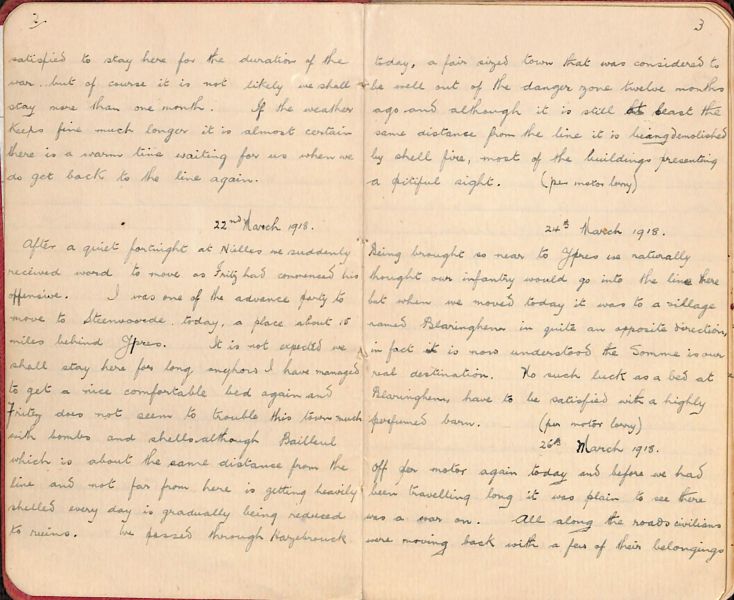 2
satisfied to stay here for the duration of the
war. but of course it is not likely we shall
stay more than one month. If the weather
keeps fine much longer it is almost certain
there is a warm time waiting for us when we
do get back to the line again.
22nd March 1918.
After a quiet fortnight at Nielles we suddenly
received word to move as Fritz had commenced his
offensive. I was one of the advance party to
move to Steenvoorde today, a place about 15
miles behind Ypres. It is not expected we
shall stay here for long, anyhow I have managed
to get a nice comfortable bed again and
Fritz does not seem to trouble this town much
with bombs and shells although Bailleul
which is about the same distance from the
line and not far from here is getting heavily
shelled every day is gradually being reduced
to ruins. We passed through Hazebrouck
3
today, a fair sized town that was considered to
be well out of the danger zone twelve months
ago and although it is still at least the
same distance from the line it is being demolished
by shell fire, most of the buildings presenting
a pitiful sight. (per motor lorry)
24th March 1918.
Being brought so near to Ypres we naturally
thought our infantry would go into the line there
but when we moved today it was to a village
named Blaringhem in quite an opposite direction,
in fact it is now understood the Somme is our
real destination. No such luck as a bed at
Blaringhem, have to be satisfied with a highly
perfumed barn. (per motor lorry)
26th March 1918.
Off per motor again today and before we had
been travelling long it was plain to see there
was a war on. All along the roads civilians
were moving back with a few of their belongings